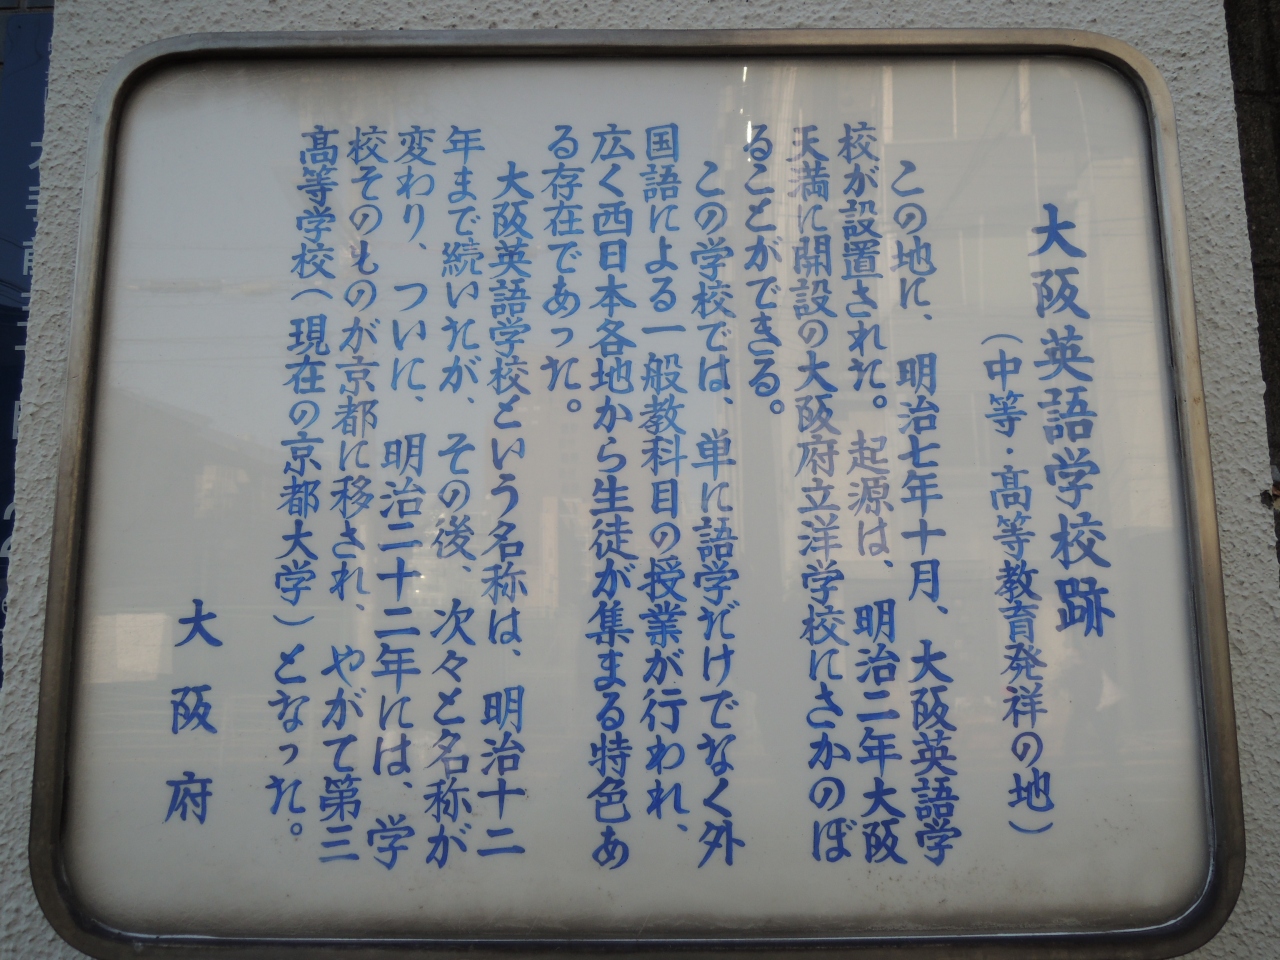 大阪英語学校跡
（中等・高等教育発祥の地）
この地に、明治七年十月、大阪英語学
校が設置された。起源は、明治二年大阪
天満に開設の大阪府立洋学校にさかのぼ
ることができる。
この学校では、単に語学だけでなく外
国語による一般教科目の授業が行われ、
広く西日本各地から生徒が集まる特色あ
る存在であった。
大阪英語学校という名称は、明治十二
年まで続いたが、その後、次々と名称が
変わり、ついに、明治二十二年には、学
校そのものが京都に移され、やがて第三
高等学校（現在の京都大学）となった。
大阪府